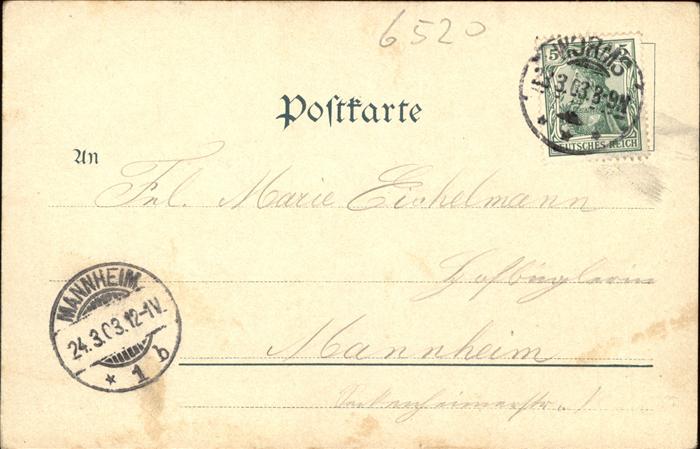 6520
5 5
23.3.03.8-9N
DEUTSCHES REICH
Postkarte
An
Frl. Marie Eichelmann
Hofbüglerin
Mannheim
Seckenheimerstr. 1
MANNHEIM.
24.3.03.12-1V.
* 1 b